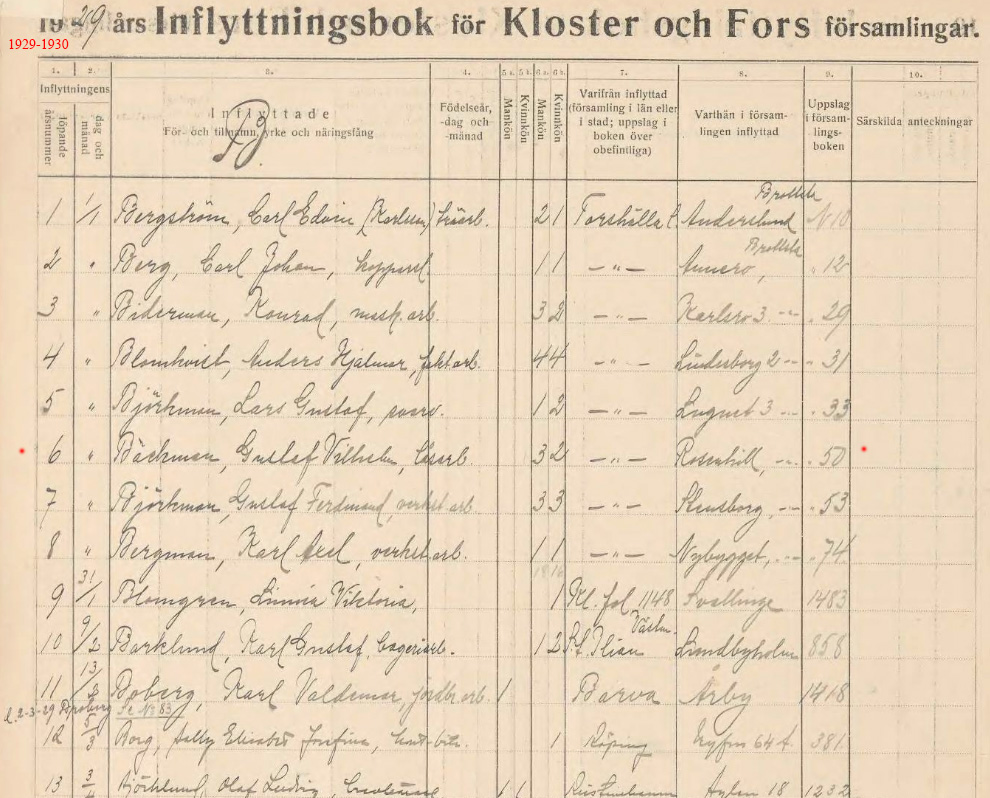 1929 års Inflyttningsbok för Kloster och Fors församlingar.
1929-1930
1. 2. 3. 4. 5 a. 5 b. 6 a. 6 b. 7. 8. 9. 10.
Inflyttningens
löpande årsnummer
dag och månad
Inflyttade
För- och tillnamn, yrke och näringsfång
Födelseår, -dag och -månad
Mankön
Kvinnkön
Mankön
Kvinnkön
Varifrån inflyttad (församling i län eller i stad; uppslag i boken över obefintliga)
Varthän i församlingen inflyttad
Uppslag i församlingsboken
Särskilda anteckningar
1 1/1 Bergström, Carl Edvin (Karlsson) 2 1 Torshälla Brottsta Anderslund N 10
2 " Berg, Carl Johan, 1 1 — " — Brottsta 12
3 " Biderman, Konrad, mask.arb. 3 2 — " — Karlsro 3 -"- " 29
4 " Blomkvist, Anders Hjalmar, fakt.arb. 4 4 — " — Lindesborg 2 -"- " 31
5 " Björkman, Lars Gustaf, 1 2 — " — Lugnet 3 -"- " 33
6 " Bäckman, Gustaf Vilhelm, 3 2 — " — Rosenhill, -"- " 50
7 " Björkman, Gustaf Ferdinand, verkst.arb. 3 3 — " — Stensborg, -"- " 53
8 " Bergman, Karl Axel, verkst.arb. 1 1 — " — Nybygget, -"- " 74
9 31/1 Blomgren, Linnéa Viktoria, 1 Kl. fol. 1148 Svallinge 1483
10 9/2 Barklund, Karl Gustaf, 1 2 Ilian Västm. Lundbyholm 858
11 13/2 Boberg, Karl Valdemar, jordbr.arb. 1 Barva Årby 1418
d. 2-3-29 Se No 83
12 5/3 Borg, Sally Elisabet Josefina, 1 Köping 64 381
13 3/4 Björklund, Olof Ludvig, 1 1 18 1232